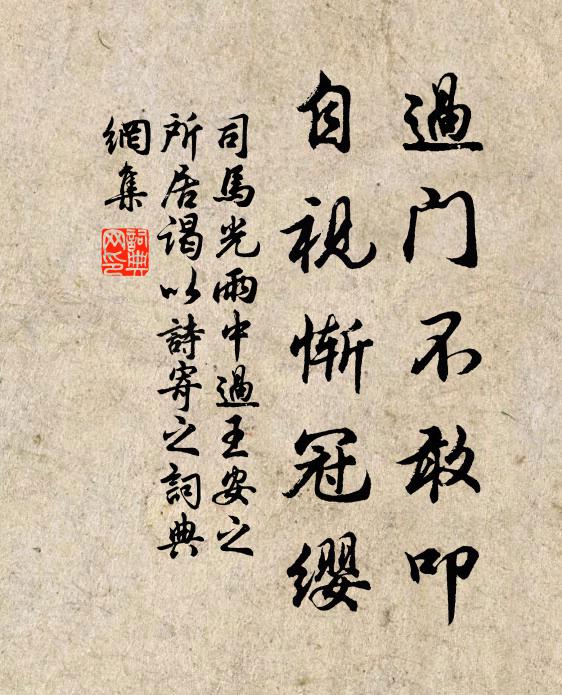 過門不敢叩
自視慚冠纓
司馬光雨中過王安之
所居謁以詩寄之詞典
網集
詞典
网印